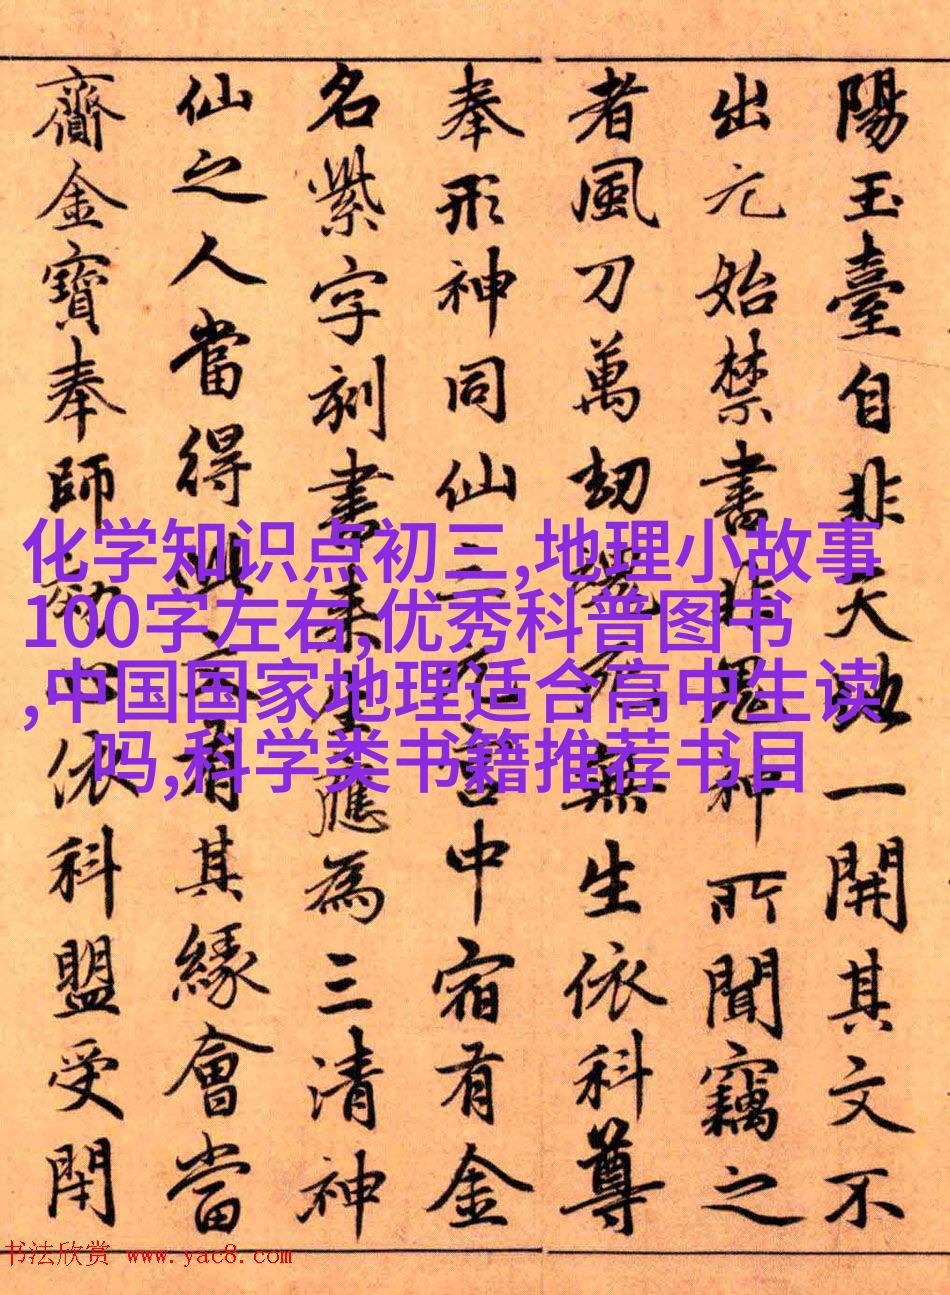 陽玉臺自非天地一開其文不
出元始禁書非鬼神所聞竊之
者風刀萬劫死無生依科尊
奉形神同仙三元宮中宿有金
名紫字刻書來生應為三清神
仙之人當得此文有其緣會當
齎金寶奉師效心依科盟受閇
化学知识点初三,地理小故事
100字左右,优秀科普图书
,中国国家地理适合高中生读
吗,科学类书籍推荐书目
书法欣赏 www.yac8.com